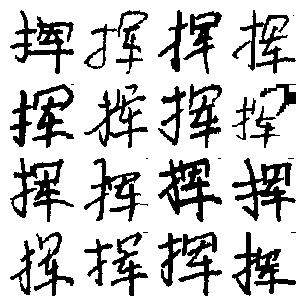 挥挥挥挥
挥挥挥挥
挥挥挥挥
挥挥挥挥